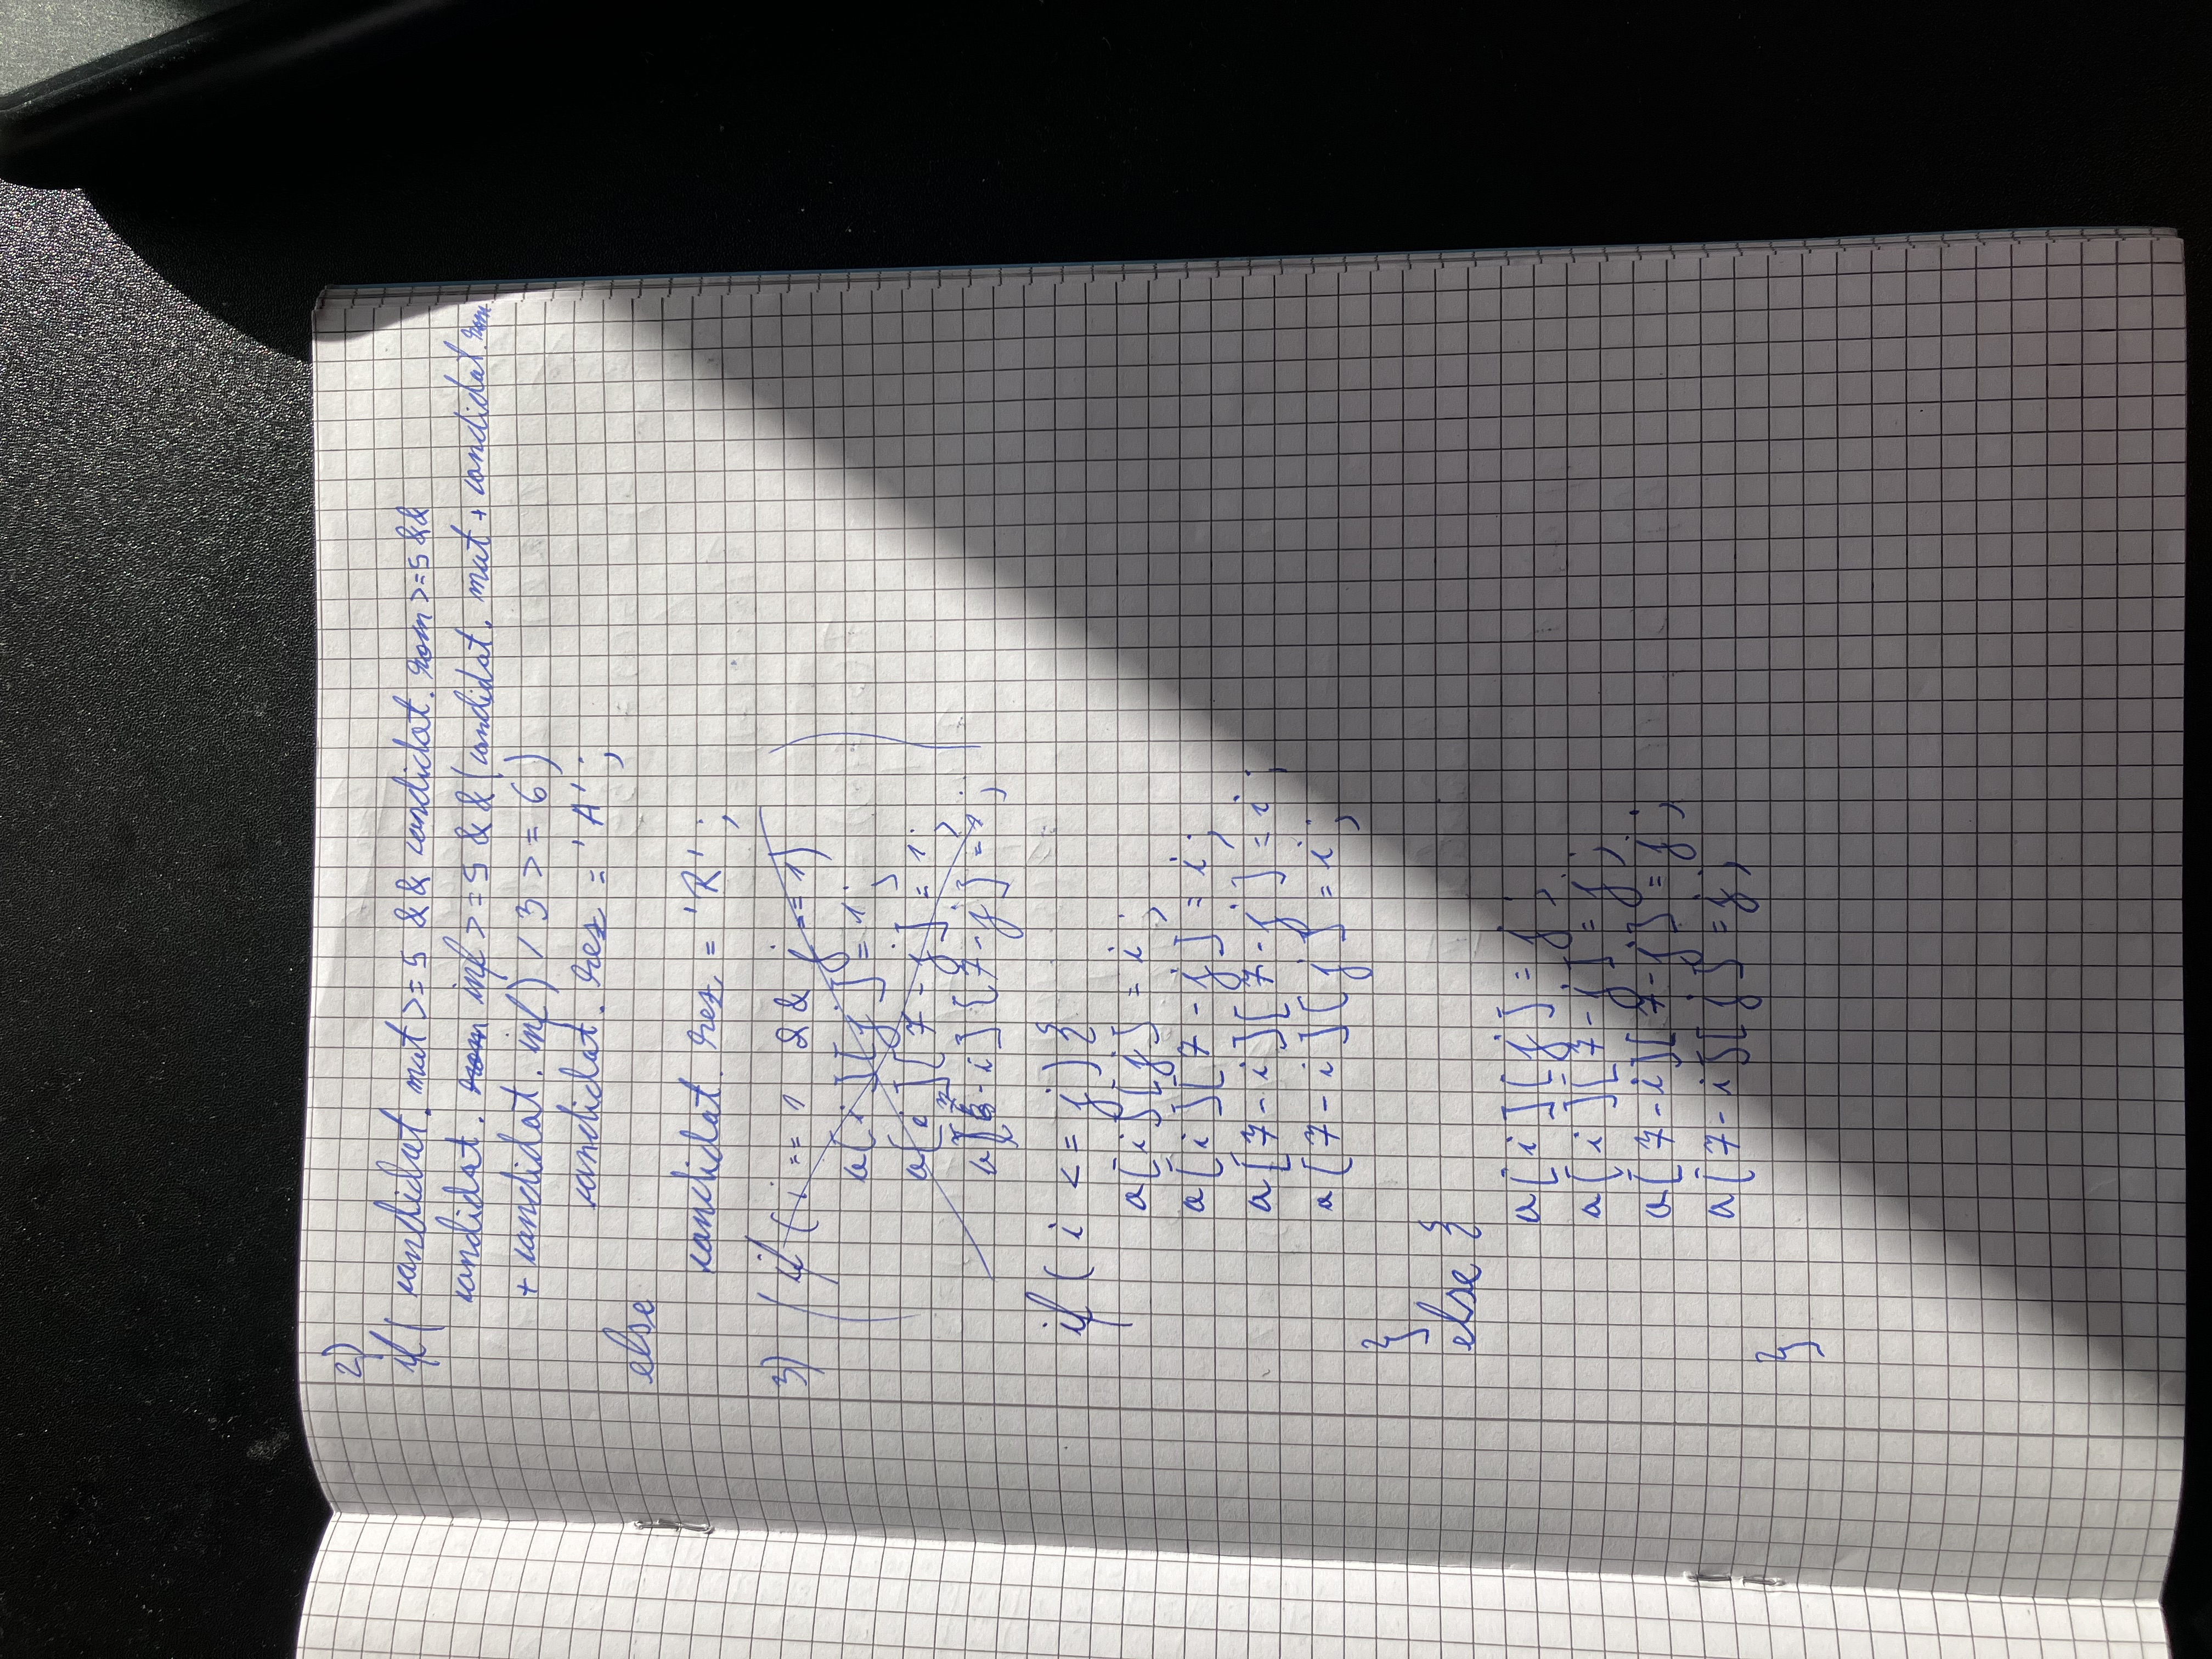 2)
if( candidat.mat >= 5 && candidat.rom >= 5 &&
candidat. rom inf >= 5 && (candidat. mat + candidat.rom
+ candidat.inf) / 3 >= 6)
candidat.rez = 'A';
else
candidat.rez = 'R';
3) ( if ( i == 1 && j == 1)
a[i][j] = 1;
a[i][7-j] = 1;
a[7-i][7-j] = 1;
if ( i <= j) {
a[i][j] = i;
a[i][7-j] = i;
a[7-i][7-j] = i;
a[7-i][j] = i;
}
else {
a[i][j] = j;
a[i][7-j] = j;
a[7-i][7-j] = j;
a[7-i][j] = j;
}